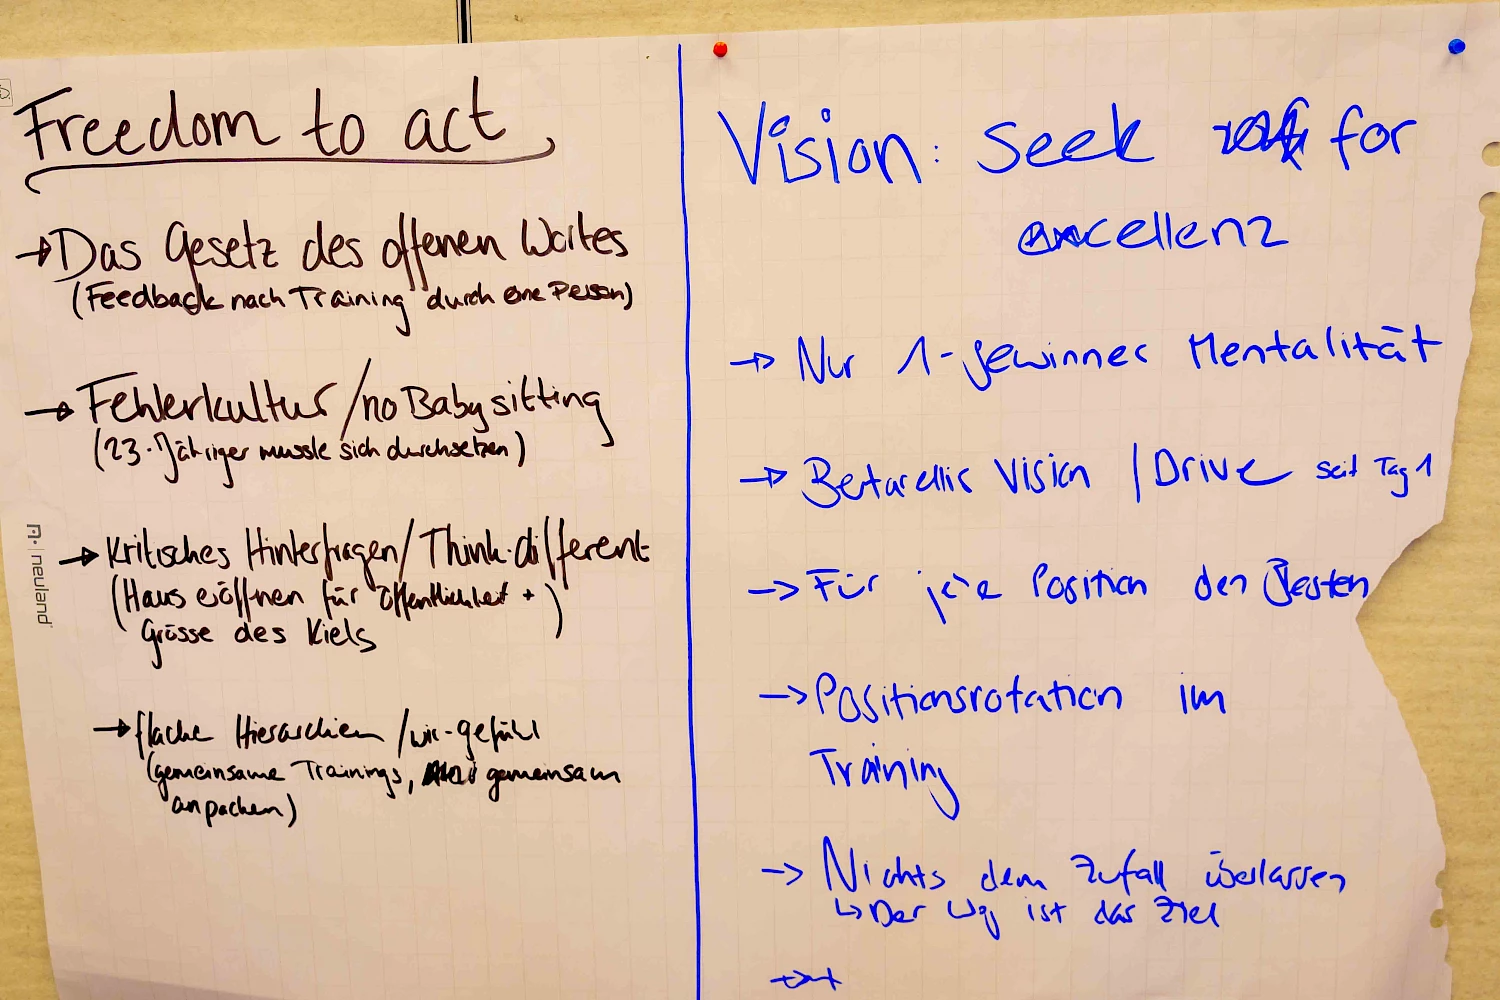 Freedom to act
→ Das Gesetz des offenen Wortes
(Feedback nach Training durch eine Person)
→ Fehlerkultur / no Babysitting
(23-Jähriger musste sich durchsetzen)
→ Kritisches Hinterfragen / Think different
(Haus eröffnen für Öffentlichkeit + )
Grösse des Kiels
→ flache Hierarchien / wir-gefühl
(gemeinsame Trainings, gemeinsam
anpacken)
neuland
Vision: Seek for
excellenz
→ Nur 1-Gewinner Mentalität
→ Bertarellis Vision / Drive seit Tag 1
→ Für jede Position den Besten
→ Positionsrotation im
Training
→ Nichts dem Zufall überlassen
↳ Der Weg ist das Ziel
→